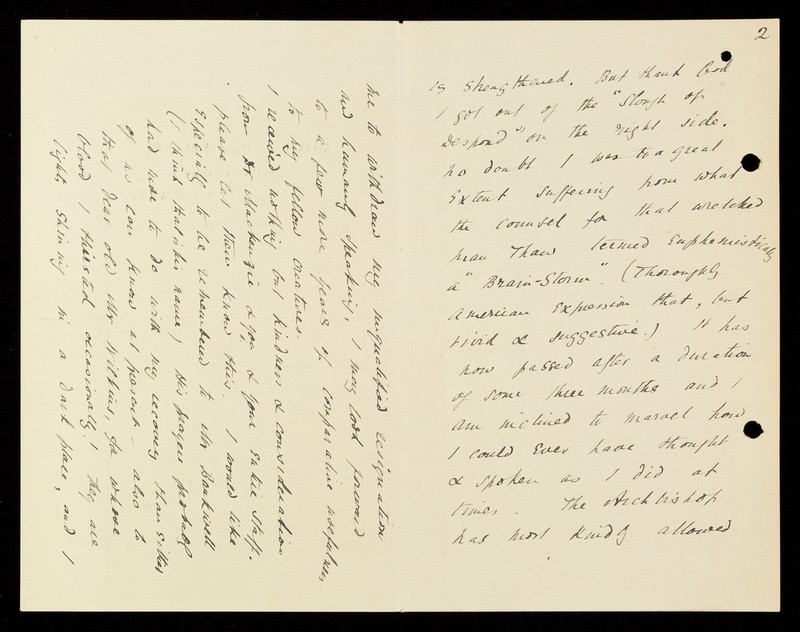 2
is strengthened. But thank God
I got out of the "Slough of
Despond" on the right side.
No doubt I was to a great
extent suffering from what
the counsel for that wretched
man Thaw termed euphemistically
a "Brain-Storm". (Thoroughly
American expression that, but
vivid & suggestive.) It has
now passed after a duration
of some three months and I
am inclined to marvel how
I could ever have thought
& spoken as I did at
times. The Archbishop
has most kindly allowed
me to withdraw my unqualified resignation
and humanly speaking, I may look forward
to a few more years of comparative usefulness
to my fellow creatures.
I received nothing but kindness & consideration
from Dr Mackenzie & you & your entire staff.
Please let them know this. I would like
especially to be remembered to Mr
(I think that is his name) His prayers
had more to do with my recovery than either
of us can know at present - also to
that dear old Mr Wilkins, for whose
blood I thirsted occasionally! They are
lights shining in a dark place, and I